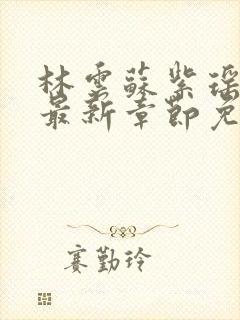 林雲蘇紫瑶
最新章節免
賽勤玲